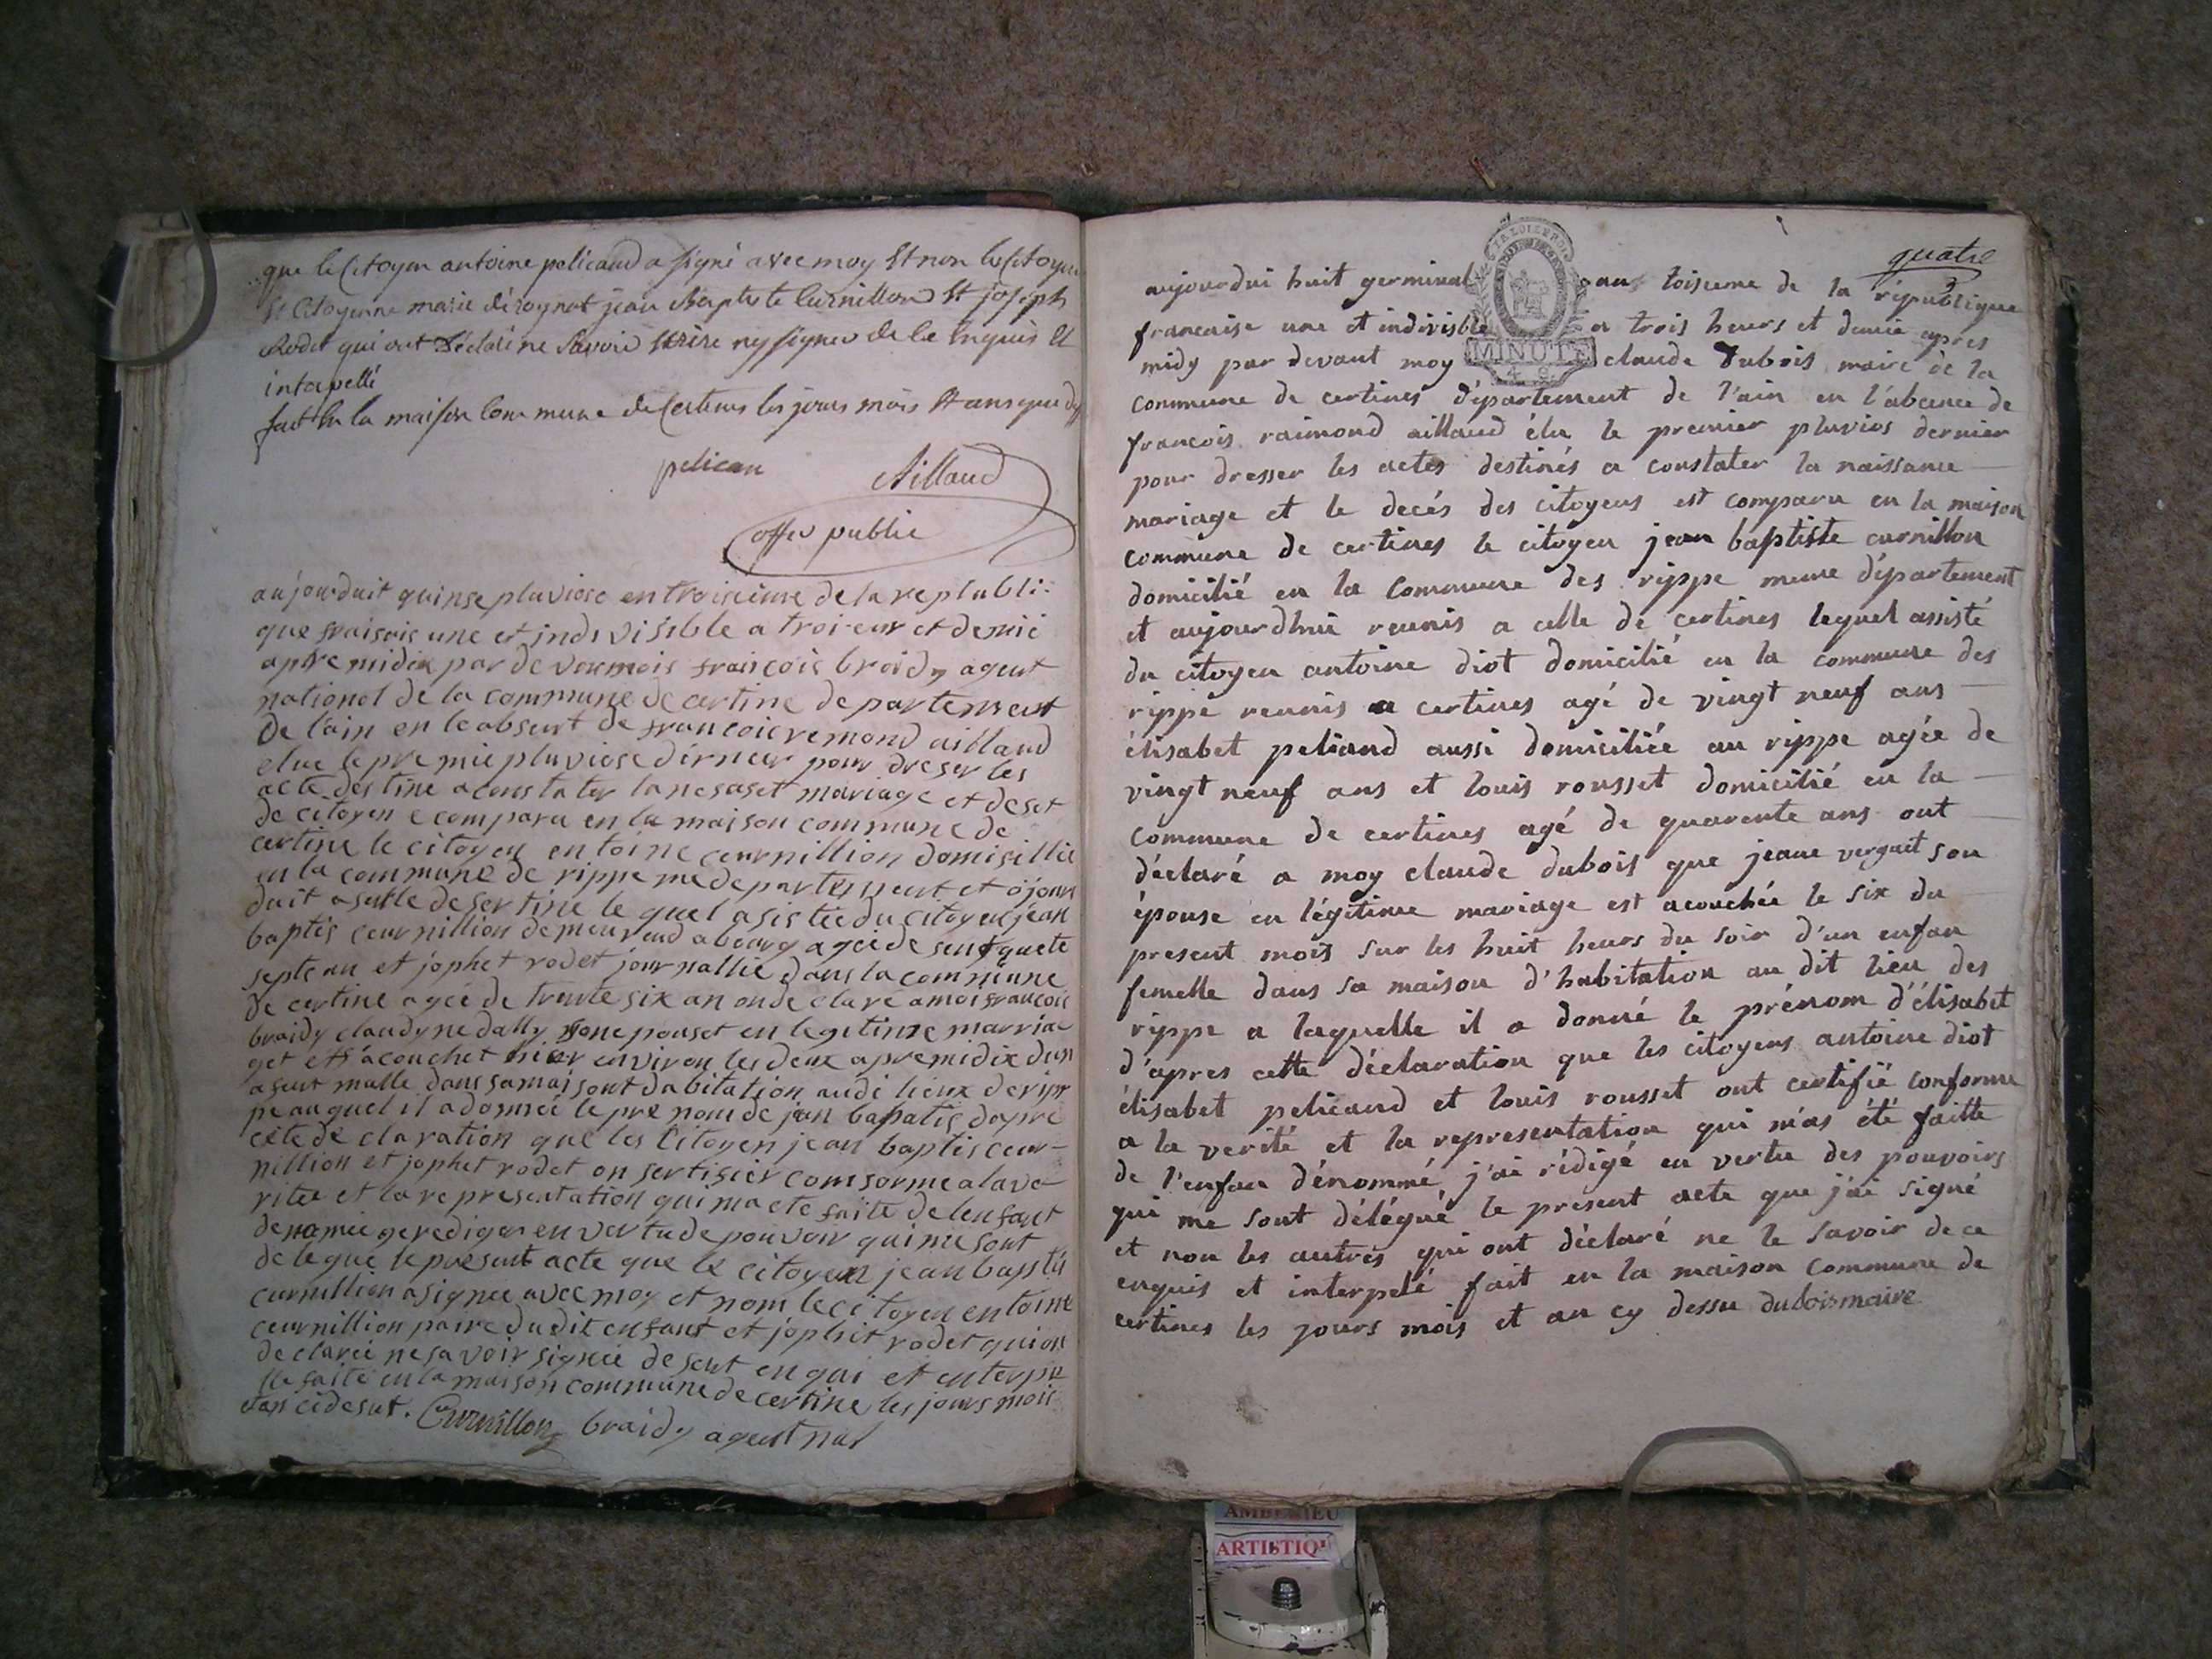 que le Citoyen antoine pelicand a signé avec moy Et non les Citoyen
Et Citoyenne marie déroynat jean Baptiste Curnillon Et joseph
Rodet qui ont Déclaré ne Savoir Ecrire ny signer de Ce Enquis Et
interpellé
fait En la maison Commune de Certines les jours mois Et ans que dy
pelican Aillaud
offer public
aujourduit quinse pluviose en troisieime de la republi-
que fraisais une et indivisible a troi eur et demié
apre midix par de van mois francois broidy agent
national de la commune de certine departement
De lain en le absent de francoie remond aillaud
elue le premié pluviose dirnier pour dreser les
acte destine a constater la nesaset mariage et deset
de citoyen e comparu en la maison commune de
certine le citoyen entoine ceurnillion domisillié
en la commune de rippe me departement et ojour
duit a sulle desertine le quel asistée du citoyen jean
baptis ceurnillion demeurend a bourg ageé de senquete
septean et jophet rodet journallié dans la commune
De certine ageé de trente six an on de clare a moi francois
braidy claudyne dally son epouset en legitime marria-
get ett acouchet hier environ les deux apremidix dun
a fent malle dans sa mai sont dabitation audi lieux de rip-
pe auquel il a donneé le pre nom de jan bapatis dapre
cete de claration que les Citoyen jean baptis ceur-
nillion et jophet rodet on sertifier comforme a la ve-
ritee et la representation qui ma ete faite de lenfant
denomeé ge rediger en vertu de pouvoir qui me sont
de legue le present acte que le citoyen jean baptis
curnillion a signee avec moy et nom le citoyen entoine
ceurnillion paire dudit enfant et jophet rodet qui on
declareé ne savoir signeé de seut enqui et enterpe
lle faite en la maison commune de certine les jours mois
et an cidesut. Curnillon braidy agent nal
quatre
aujourdui huit germinal an toisieme de la république
francaise une et indivisible a trois heurs et demie apres
midy par devant moy claude Dubois maire de la
MINUTE
commune de certines département de l'ain en l'abcence de
francois raimond aillaud élu le premier pluvios dernier
pour dresser les actes destinés a constater la naissance
mariage et le decés des citoyens est comparu en la maison
commune de certines le citoyen jean baptiste curnillon
domicilié en la Commune des rippe meme département
et aujourdhui reunis a celle de certines lequel assisté
du citoyen antoine diot domicilié en la commune des
rippe reunis a certines agé de vingt neuf ans
élisabet peliand aussi domiciliée au rippe agée de
vingt neuf ans et louis rousset domicilié en la
commune de certines agé de quarente ans ont
déclaré a moy claude dubois que jeane verguet son
épouse en légitime mariage est acouchée le six du
present mois sur les huit heurs du soir d'un enfan
femelle dans sa maison d'habitation au dit lieu des
rippe a laquelle il a donné le prénom d'élisabet
d'apres cette déclaration que les citoyens antoine diot
élisabet pelicand et louis rousset ont certifié conforme
a la verité et la representation qui m'as été faitte
de l'enfan dénommé j'ai rédigé en vertu des pouvoirs
qui me sont délégué le present acte que j'ai signé
et non les autres qui ont déclaré ne le savoir de ce
enquis et interpelé fait en la maison commune de
certines les jours mois et an cy dessu dubois maire
AMBERIEU
ARTISTIQU